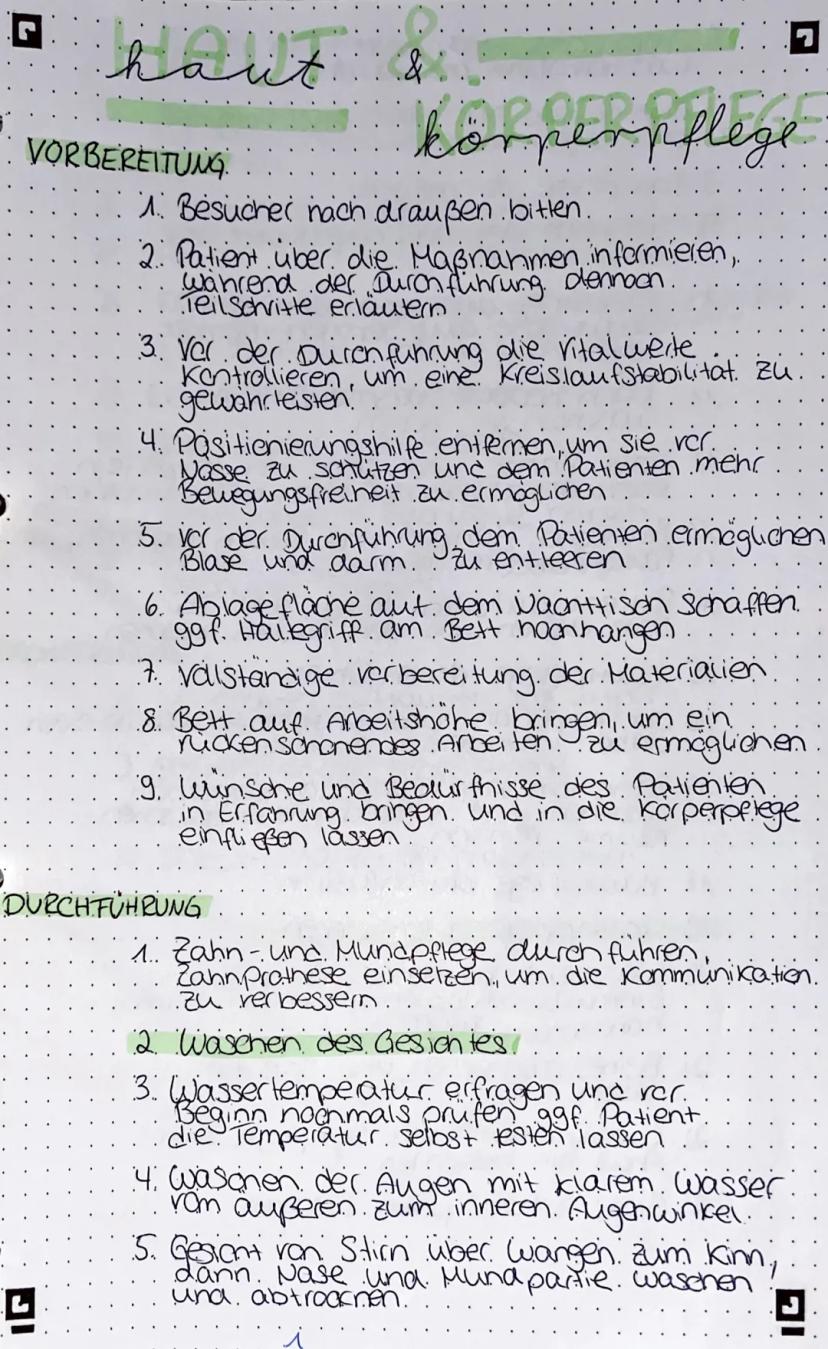 HAUT &
haut &
KÖRPERPFLEGE
körperpflege
VORBEREITUNG
1. Besucher nach draußen bitten.
2. Patient über die Maßnahmen informieren,
während der Durchführung dennoch
Teilschritte erläutern.
3. Vor der Durchführung die Vitalwerte
kontrollieren, um eine Kreislaufstabilität zu
gewährleisten.
4. Positionierungshilfe entfernen, um sie vor
Nässe zu schützen und dem Patienten mehr
Bewegungsfreiheit zu ermöglichen
5. vor der Durchführung dem Patienten ermöglichen
Blase und darm zu entleeren
6. Ablagefläche auf dem Nachttisch schaffen
ggf. Haltegriff am Bett hochhängen
7. vollständige vorbereitung der Materialien
8. Bett auf Arbeitshöhe bringen, um ein
rückenschonendes Arbeiten zu ermöglichen
9. Wünsche und Bedürfnisse des Patienten
in Erfahrung bringen und in die Körperpflege
einfließen lassen
DURCHFÜHRUNG
1. Zahn- und Mundpflege durchführen,
Zahnprothese einsetzen, um die Kommunikation
zu verbessern
2. Waschen des Gesichtes
3. Wassertemperatur erfragen und vor
Beginn nochmals prüfen ggf. Patient
die Temperatur selbst testen lassen
4. Waschen der Augen mit klarem Wasser
vom äußeren zum inneren Augenwinkel
5. Gesicht von Stirn über Wangen zum Kinn,
dann Nase und Mundpartie waschen
und abtrocknen.
1